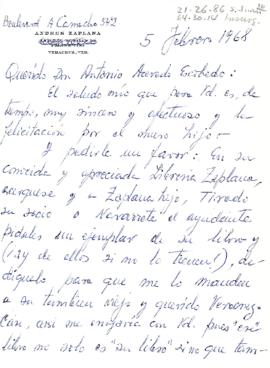 Boulevard A Camacho 542
21-26-86 S.
64-30-14
ANDRES ZAPLANA
VERACRUZ, VER.
5 Febrero 1968
Querido Don Antonio Acevedo Escobedo:
El saludo mio que para Vd. es, de
tiempo, muy sincero y afectuoso y la
felicitación por el nuevo hijo-
Y pedirle un favor: En su
conocida y apreciada Libreria Zaplana,
acerquese y a Zaplana hijo, Tirado
su socio o Navarrete el ayudante
pidales un ejemplar de su libro y
(¡ay de ellos si no lo tienen!), de-
diquelo para que me lo manden
a su tambien viejo y querido Veracruz.
asi me
con Vd. pues "ese
libro no solo es "su libro" sino que tam-